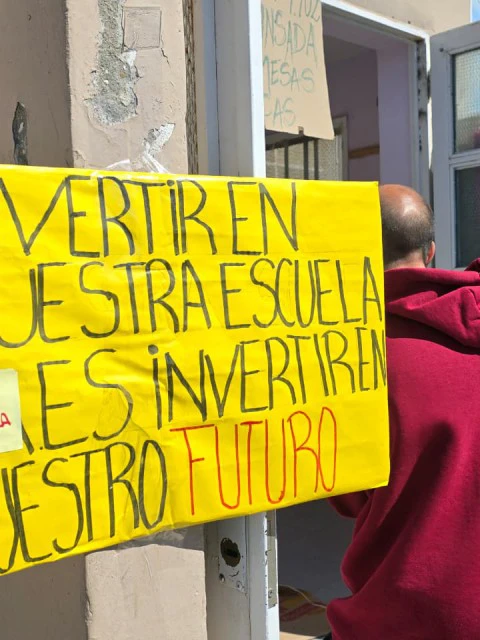 NSADA
MESAS
AS
VERTiR EN
UESTRA ESCUELA
ES iNVERTIR EN
UESTRO FUTURO
A